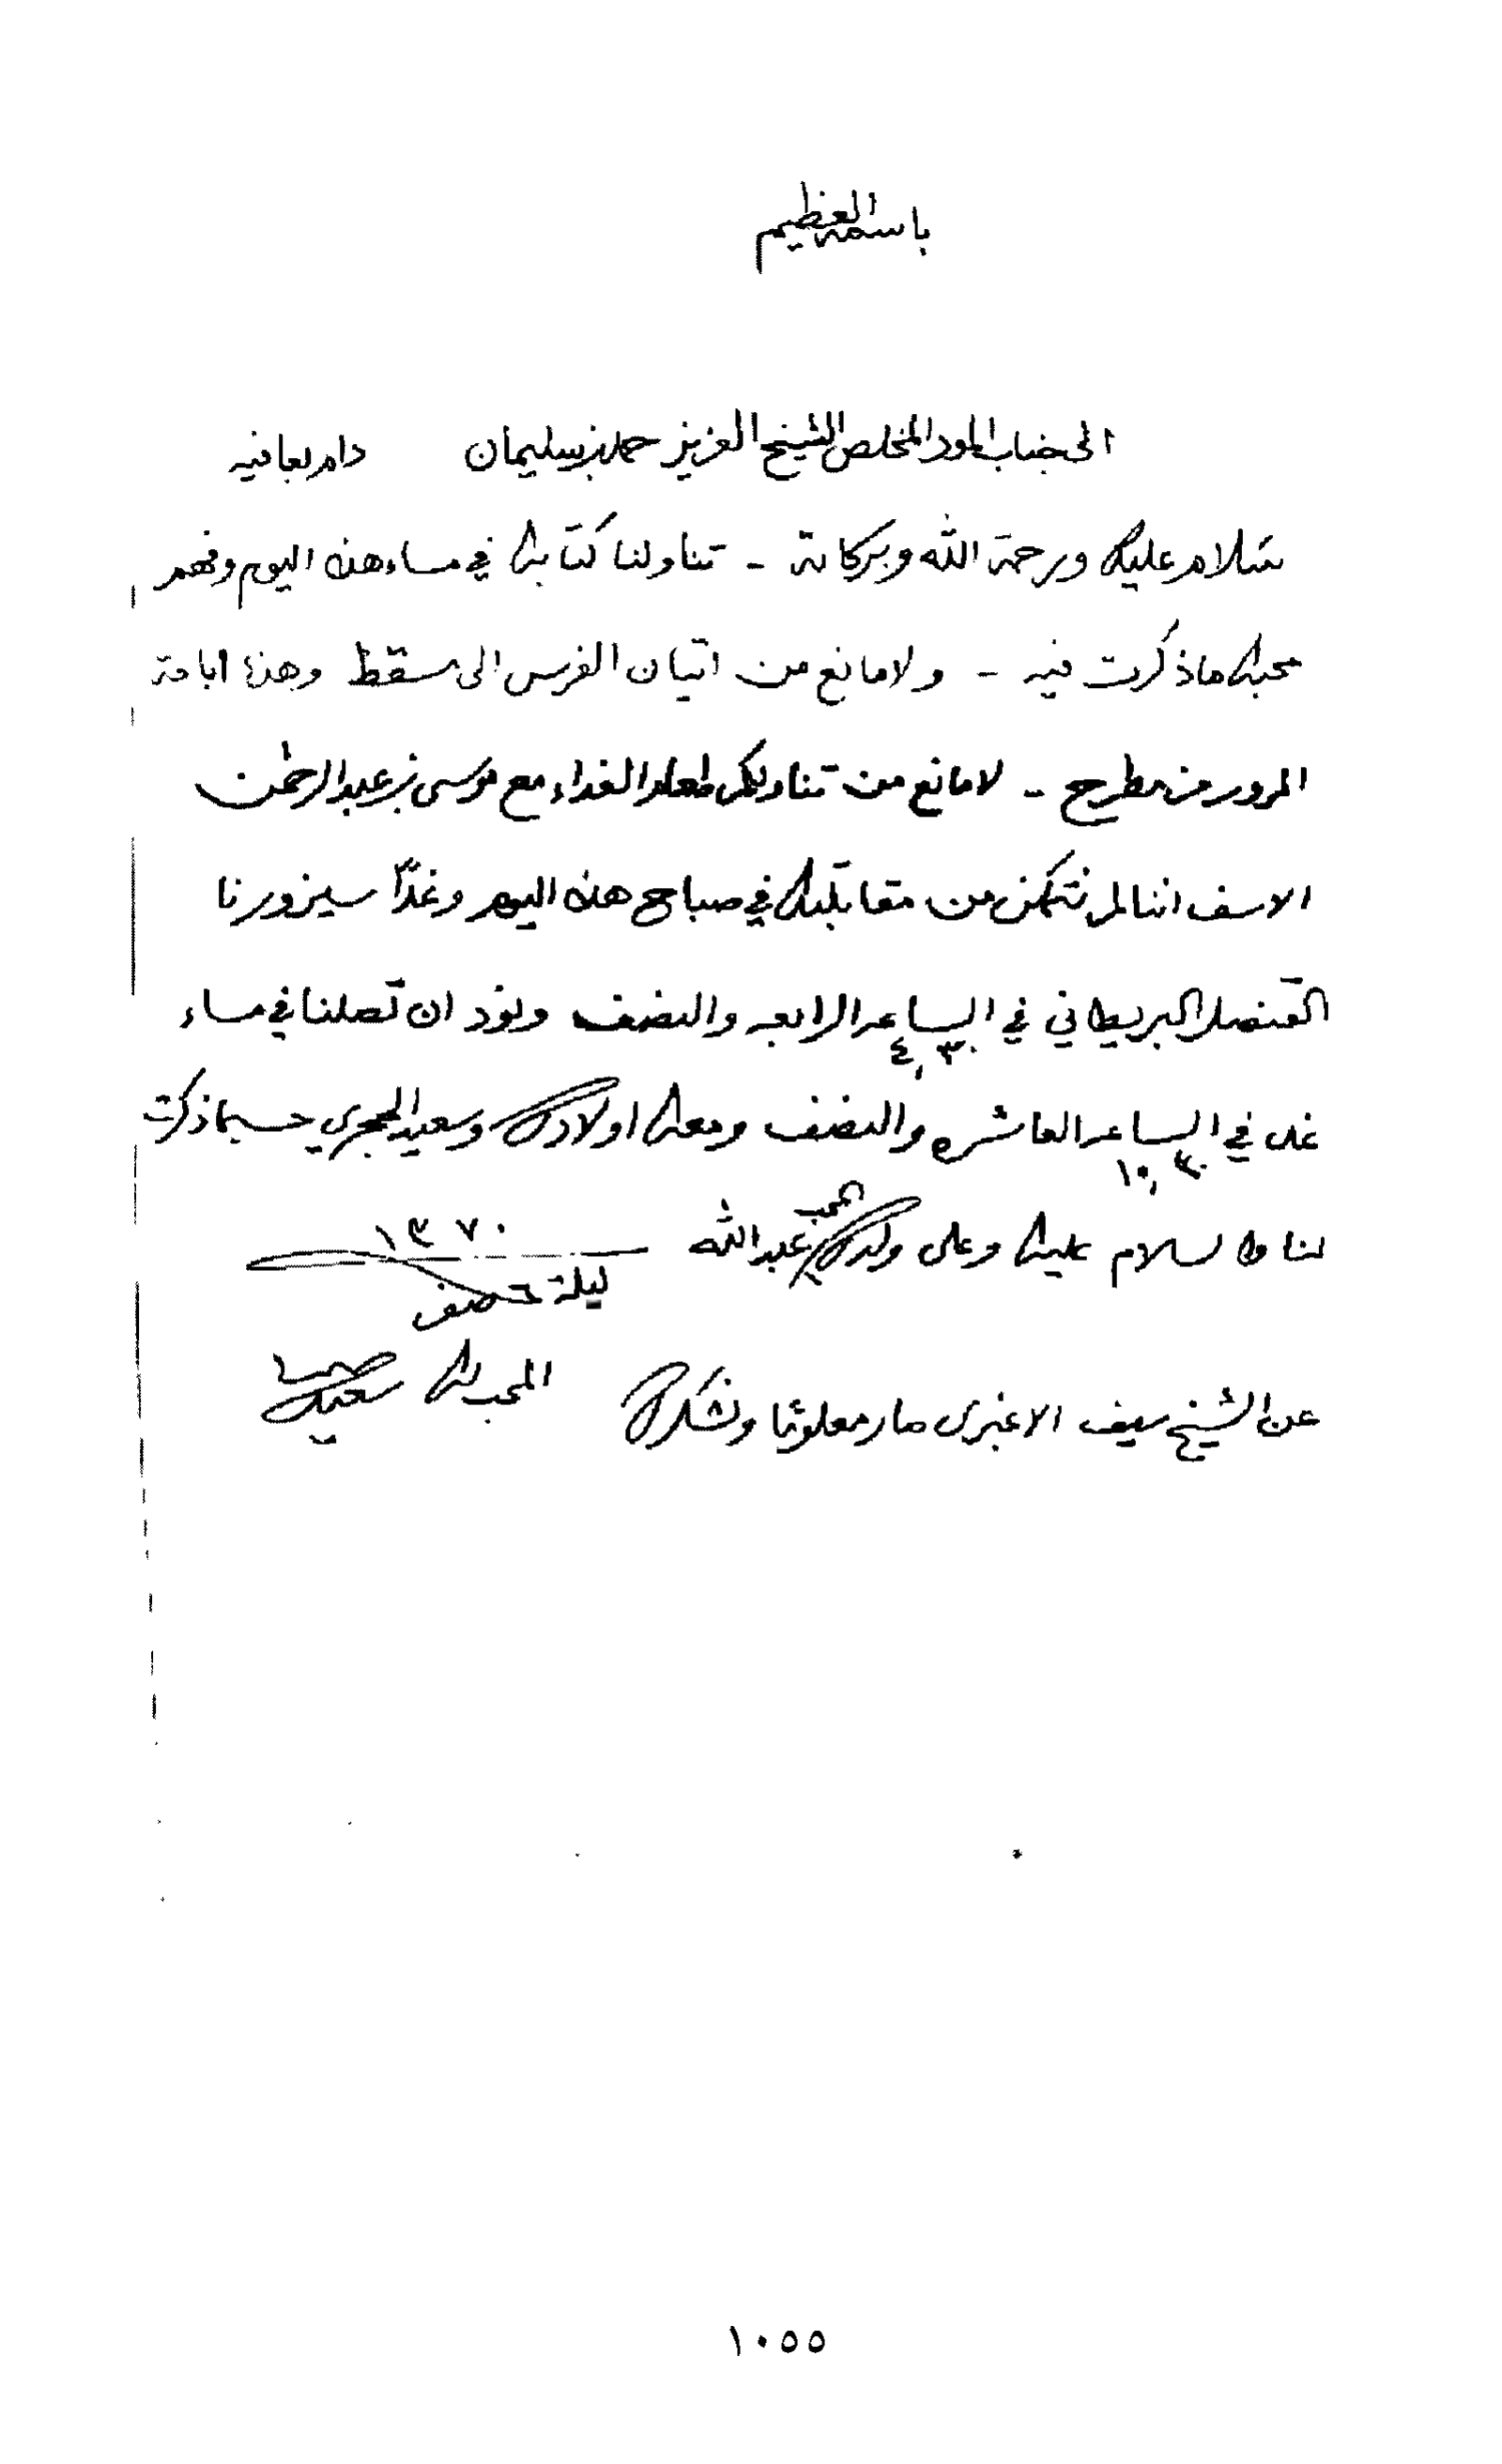 باسمه العظيم
الى جناب المود المخلص الشيخ العزيز حمد بن سليمان دام بعافيه
سلام عليك ورحمة الله وبركاته - تناولنا كتابك في مساء هذه اليوم وفهم
محبك ما ذكرت فيه - ولا مانع من اتيان الفرس الى مسقط وهذا اباحة
المرور من مطرح - لا مانع من تناولكم طعام الغداء مع موسى بن عبدالرحمن
الاسف اننا لم نتمكن من مقابلتك في صباح هذه اليوم وغداً سيزورنا
القنصل البريطاني في الساعه الرابعه والنصف ونود ان تصلنا في مساء
٤,٣٠
غد في الساعه العاشره والنصف ومعك اولادك وسعيد الحجري حسبما ذكرت
١٠,٣٠
لنا والسلام عليك وعلى ولدك المحب عبدالله
١٣٧٠
ليلة ٦ صفر
المحب لك سعيد
عن الشيخ سيف الاغبري صار معلوما ونشكرك
١٠٥٥